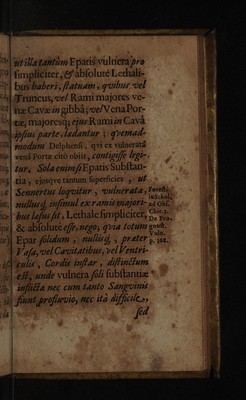 ut illa tantùm Epatis vulnera pro
simpliciter, & absolutè Lethali-
bus haberi, statuam, quibus vel
Truncus, vel Rami majores ve-
næ Cavæ in gibbâ; vel Vena Por-
tæ, majoresq; ejus Rami in Cavâ
ipsius parte, lædantur; quemad-
modum Delphensi, qui ex vulneratâ
venâ Portæ citò obiit, contigisse legi-
tur. Sola enim si Epatis Substan-
tia, ejusqve tantum superficies, ut
Sennertus loqvitur, vulnerata,
nullusq; insimul ex ramis majori-
bus læsus sit, Lethale simpliciter,
& absolutè esse, nego; qvia totum
Epar solidum, nullisq;, præter
Vasa, vel Cavitatibus, vel Ventri-
culis, Cordis instar, distinctum
est, unde vulnera soli substantiæ
inflicta nec cum tanto Sangvinis
fiunt profluvio, nec ità difficile,
sed
Forest.
in Schol.
ad Obs.
Chir.
De Pro-
gnost.
Vuln.